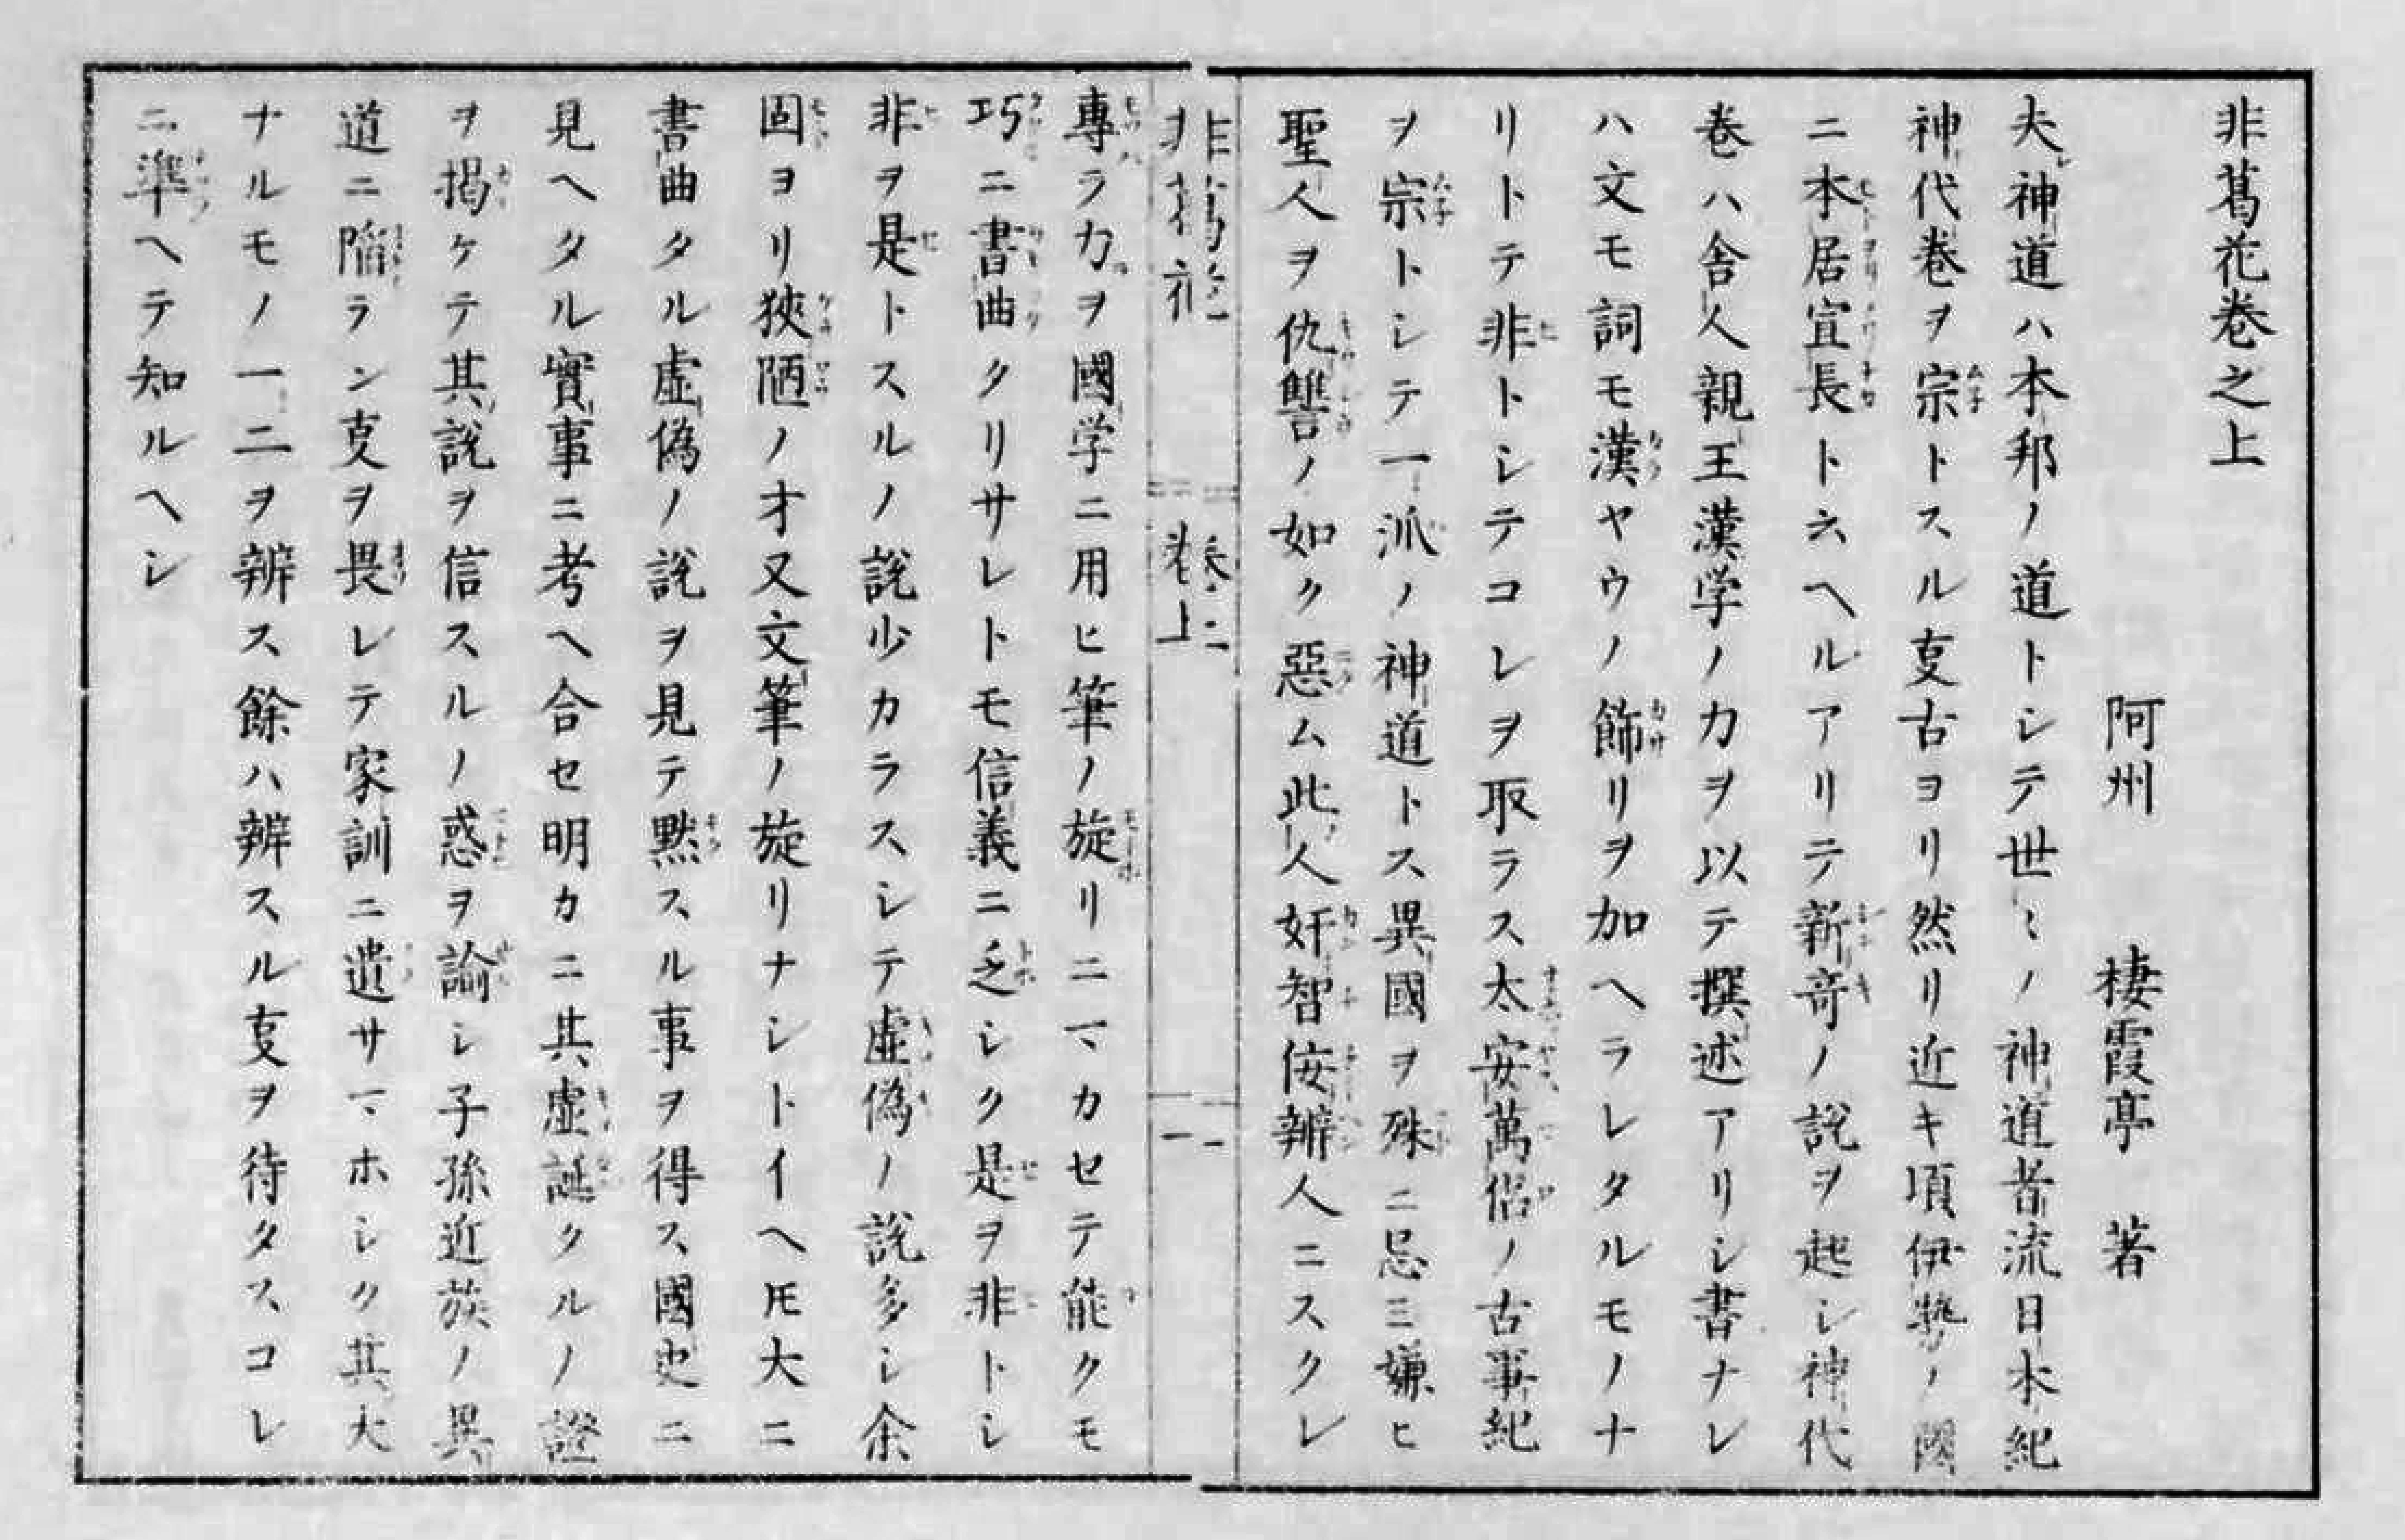 非葛花巻之上
阿州　棲霞亭　著
夫神道ハ本邦ノ道トシテ世〻ノ神道者流日本紀
神代巻ヲ宗トスル叓古ヨリ然リ近キ頃伊勢ノ國
ニ本居宣長ト云ヘルアリテ新竒ノ説ヲ起シ神代
巻ハ舎人親王漢学ノ力ヲ以テ撰述アリシ書ナレ
ハ文モ詞モ漢ヤウノ飾リヲ加ヘラレタルモノナ
リトテ非トシテコレヲ取ラス太安萬侶ノ古事紀
ヲ宗トシテ一派ノ神道トス異國ヲ殊ニ忌ミ嫌ヒ
聖人ヲ仇讐ノ如ク惡ム此人奸智佞辨人ニスクレ
非葛花　巻上　一
專ラ力ヲ國学ニ用ヒ筆ノ旋リニマカセテ能クモ
巧ニ書曲クリサレトモ信義ニ乏シク是ヲ非トシ
非ヲ是トスルノ説少カラスシテ虚偽ノ説多シ余
固ヨリ狹陋ノ才又文筆ノ旋リナシトイヘ𪜈大ニ
書曲タル虚偽ノ説ヲ見テ黙スル事ヲ得ス國史ニ
見ヘタル實事ニ考ヘ合セ明カニ其虚誕クルノ證
ヲ掲ケテ其説ヲ信スルノ惑ヲ諭シ子孫近族ノ異
道ニ陥ラン叓ヲ畏レテ家訓ニ遺サマホシク其大
ナルモノ一二ヲ辨ス餘ハ辨スル叓ヲ待タスコレ
ニ準ヘテ知ルヘシ